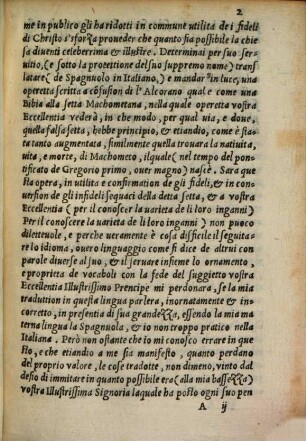 2
me in publico gli ha ridotti in commune utilita de i fideli
di Christo s'sforzza proueder che quanto fia possibile la chie
sa diuenti celeberrima & illustre. Determinai per suo ser⸗
uitio, (e sotto la protettione del suo suppremo nome) trans
latare ( de Spagnuolo in Italiano,) e mandar' in luce, una
operetta scritta a cōfusion di l'Alcorano qual e come una
Bibia alla setta Machometana, nella quale operetta vostra
Eccellentia vederà, in che modo, per qual via, e doue,
quella falsa setta, hebbe principio, & etiandio, come è sta⸗
ta tanto augmentata, similmente quella trouara la natiuita,
vita, e morte, di Machometo, ilquale ( nel tempo del pon⸗
tificato de Gregorio primo, ouer magno) nascè. Sara que
sta opera, in utilita e confirmation de gli fideli, & in con⸗
uersion de gli infideli sequaci della detta setta, & a vostra
Eccellentia ( per il conoscer la varieta de li loro inganni)
Per il conoscere la varieta de li loro inganni ) non puoco
diletteuole, e perche ueramente è cosa difficile il seguita⸗
re lo idioma, ouero linguaggio come fi dice de altrui con
parole diuerse al suo, & il seruare insieme lo ornamento,
e proprieta de vocaboli con la fede del suggietto vostra
Eccellentia Illustrissimo Prencipe mi perdonara, se la mia
tradution in questa lingua parlera, inornatamente & in⸗
corretto, in presentia di sua grandezza, essendo la mia ma
terna lingua la Spagnuola, & io non troppo pratico nella
Italiana. Però non ostante che io mi conosco errare in que
sto, e che etiandio a me sia manifesto, quanto perdano
del proprio valore, le cose tradotte, non dimeno, vinto dal
desio di immitare in quanto possibile era (alla mia bassezza)
vostra Illustrissima Signoria laquale ha posto ogni suo pen
A ij